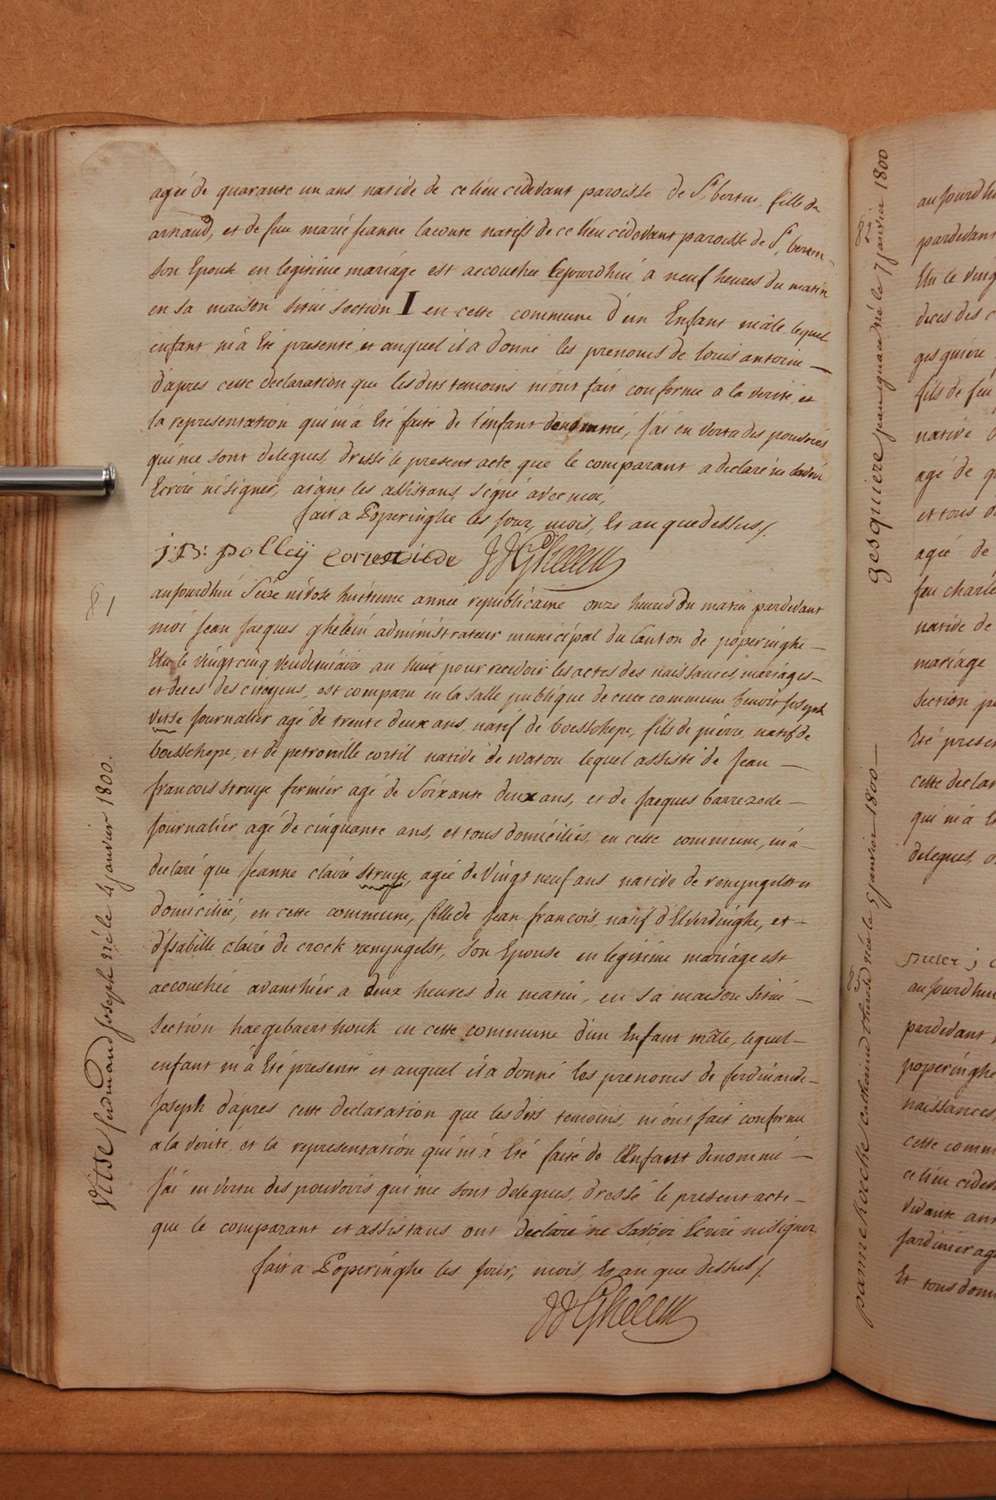 agée de quarante un ans native de ce lieu cidevant paroisse de St bertin, fille de
arnaud, et de feu marie jeanne lacoute natifs de ce lieu cidevant paroisse de St bertin,
son Epouse en legitime mariage est accouchée cejourdhui a neuf heures du matin
en sa maison située section I en cette commune d'un Enfant mâle, lequel
enfant m'a été presenté, et auquel il a donné les prenoms de louis antoine —
d'apres cette declaration que lesdits temoins m'ont fait conforme a la verité, et
la representation qui m'a été faite de l'enfant denommé, j'ai en vertu des pouvoirs
qui me sont delegués, dressé le present acte que le comparant a declaré ne savoir
Ecrire ni signer, aiant les assistans signé avec moi,
fait a Poperinghe les jour, mois, et an que dessus /.
J:B: polley JJ Ghelein
81
aujourdhui Seize nivose huitieme année republicaine onze heures du matin pardevant
moi Jean Jacques ghelein administrateur municipal du Canton de poperinghe —
Elu le vingt cinq vendemiaire an huit pour recevoir les actes des naissances mariages —
et deces des citoyens, est comparu en la salle publique de cette commune benoit joseph
visse journalier agé de trente deux ans, natif de boesschepe, fils de pierre, natif de
boesschepe, et de petronille cortil native de watou lequel assisté de Jean —
francois struye fermier agé de Soixante deux ans, et de Jacques barrezeele —
journalier agé de cinquante ans, et tous domiciliés, en cette commune, m'a
declaré que Jeanne claire struye, agée de vingt neuf ans native de renyngelst et
domiciliée, en cette commune, fille de jean francois, natif d'Elverdinghe, et —
d'Isabille claire de crock renyngelst, son Epouse en legitime mariage est
accouchée avanthier a deux heures du matin, en sa maison située —
section haegebaert houk en cette commune d'un Enfant mâle, lequel —
enfant m'a été presenté et auquel il a donné les prenoms de ferdinande —
Joseph d'apres cette declaration que lesdits temoins, m'ont fait conforme
a la verité, et la representation qui m'a été faite de l'Enfant denommé —
j'ai en vertu des pouvoirs qui me sont delegués, dressé le present acte —
que le comparant et assistans ont declaré ne savoir Ecrire ni signer
fait a Poperinghe les jour, mois, et an que dessus /.
JJ Ghelein
Visse ferdinand Joseph né le 4 janvier 1800.
gesquiere jean né le 7 janvier 1800
né le 5 janvier 1800
aujourdhui
pardevant
Elu le vingt
deces des c
gesquiere
fils de feu
native d
agé de q
et tous d
agée de
feu charle
native de
mariage
section
Eté presen
cette declar
qui m'a E
delegués, d
aujourdhui
pardevant
poperinghe
naissances
cette comm
ce lieu cidev
vidante ans
jardinier ag
Et tous domi